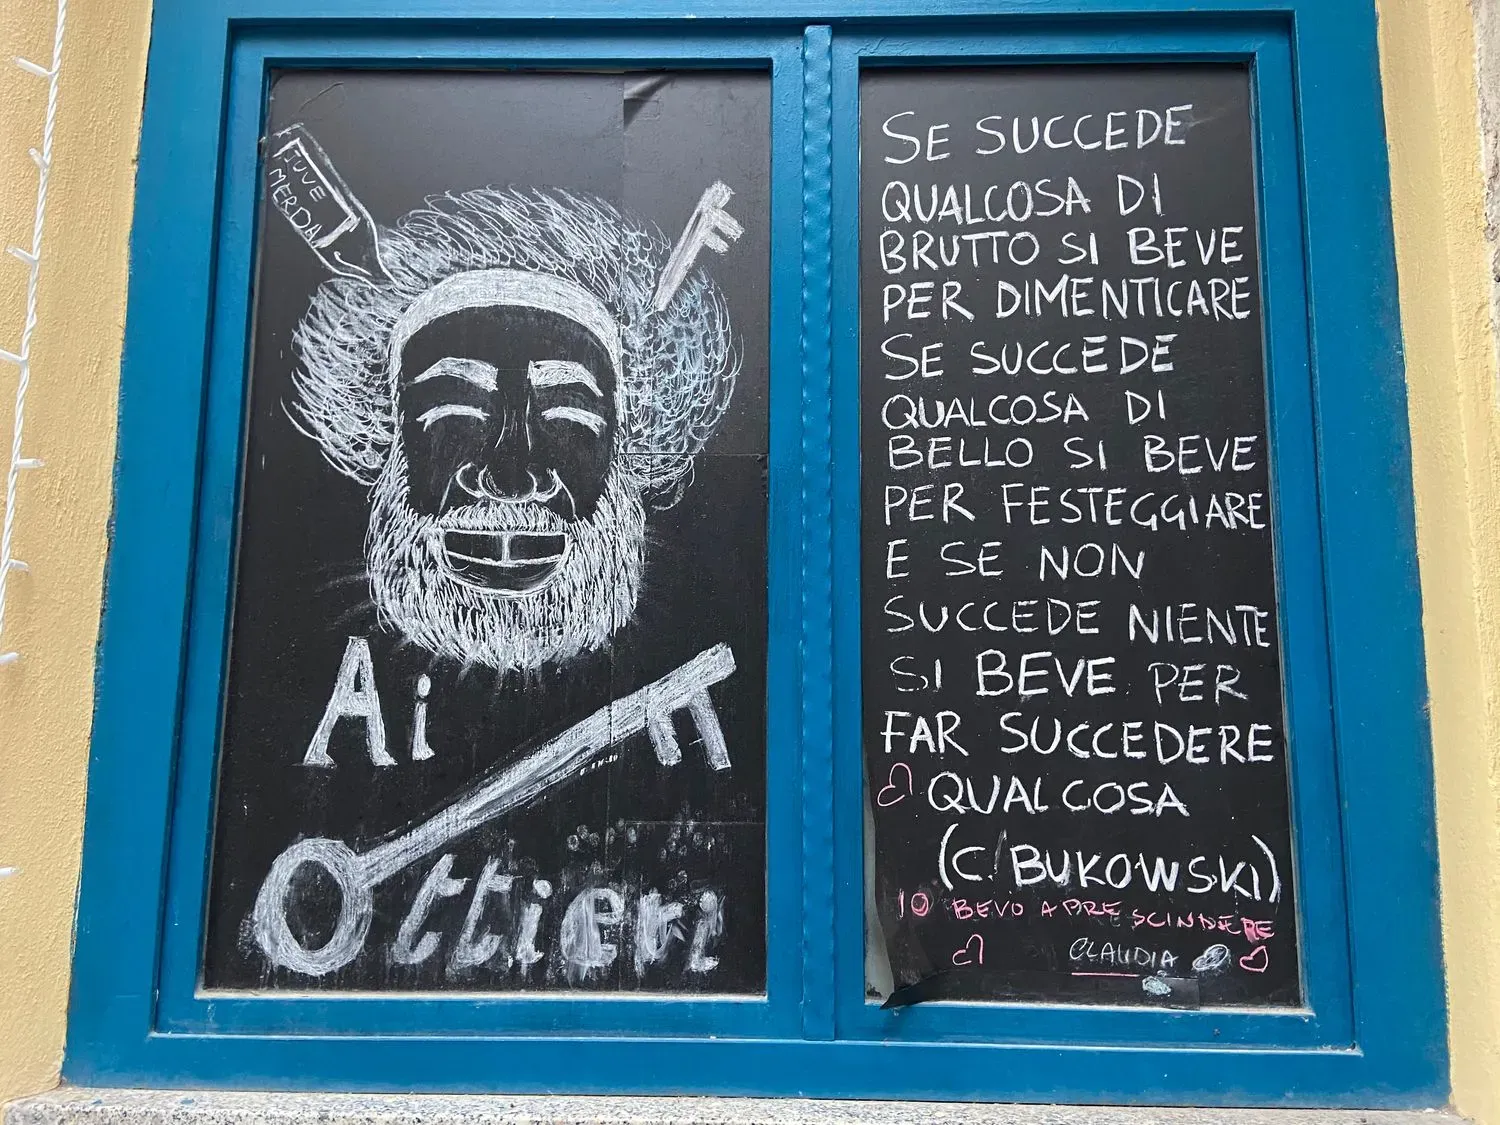 JUVE
MERDA
Ai
Ottieri
SE SUCCEDE
QUALCOSA DI
BRUTTO SI BEVE
PER DIMENTICARE
SE SUCCEDE
QUALCOSA DI
BELLO SI BEVE
PER FESTEGGIARE
E SE NON
SUCCEDE NIENTE
SI BEVE PER
FAR SUCCEDERE
QUALCOSA
(C. BUKOWSKI)
IO BEVO A PRESCINDERE
CLAUDIA